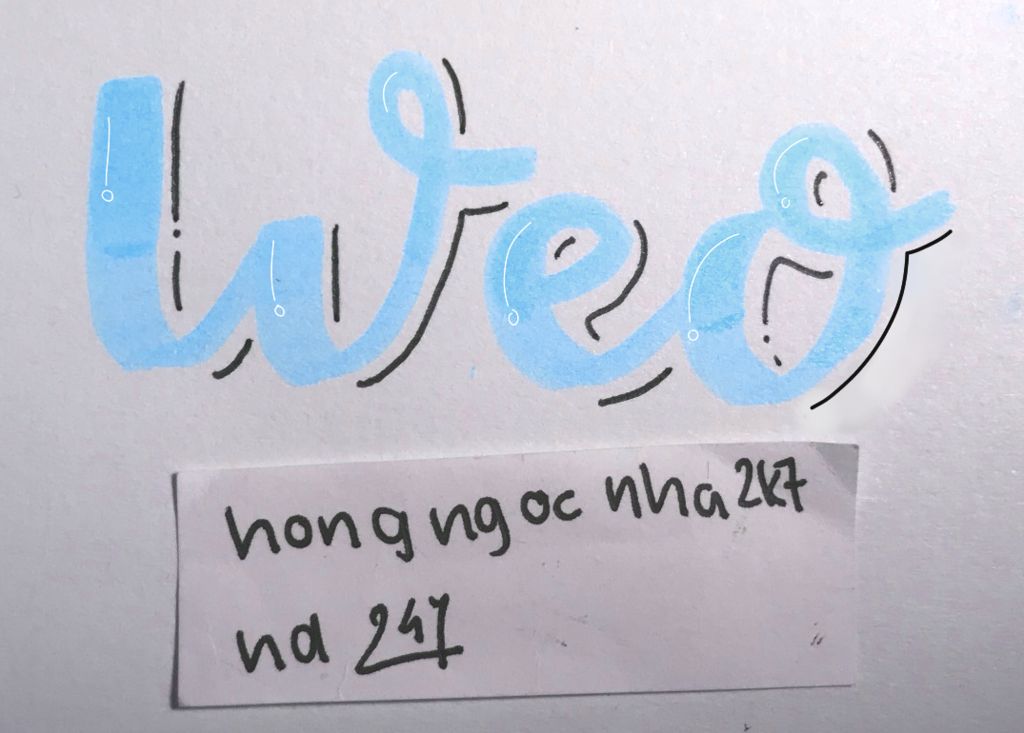 Weo
hongngoc nha2k7
nd 247